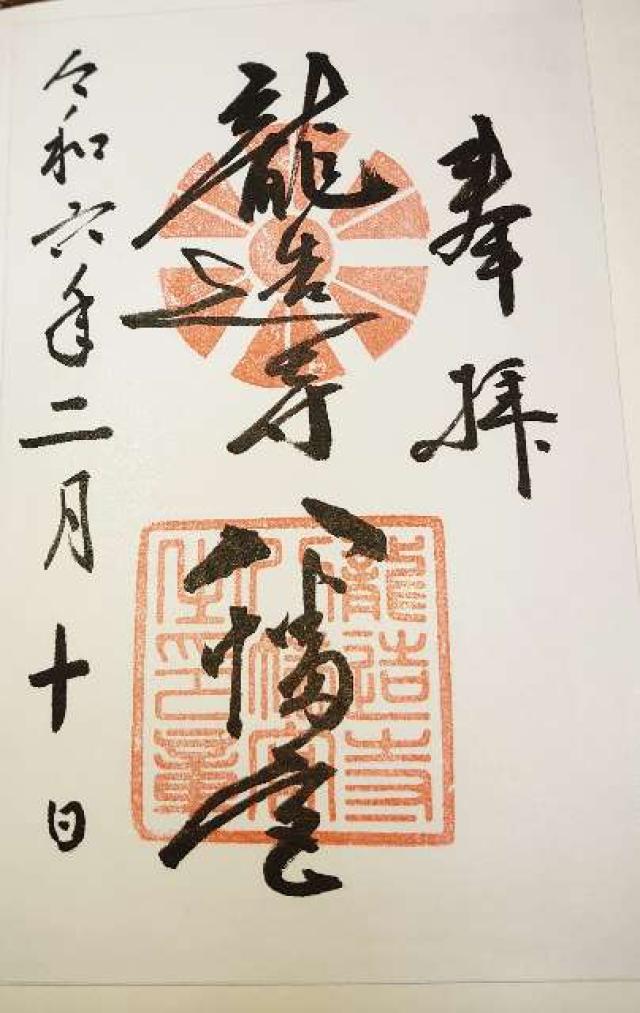 奉拝
龍造寺
八幡宮
龍造寺
八幡宮
令和六年二月十日